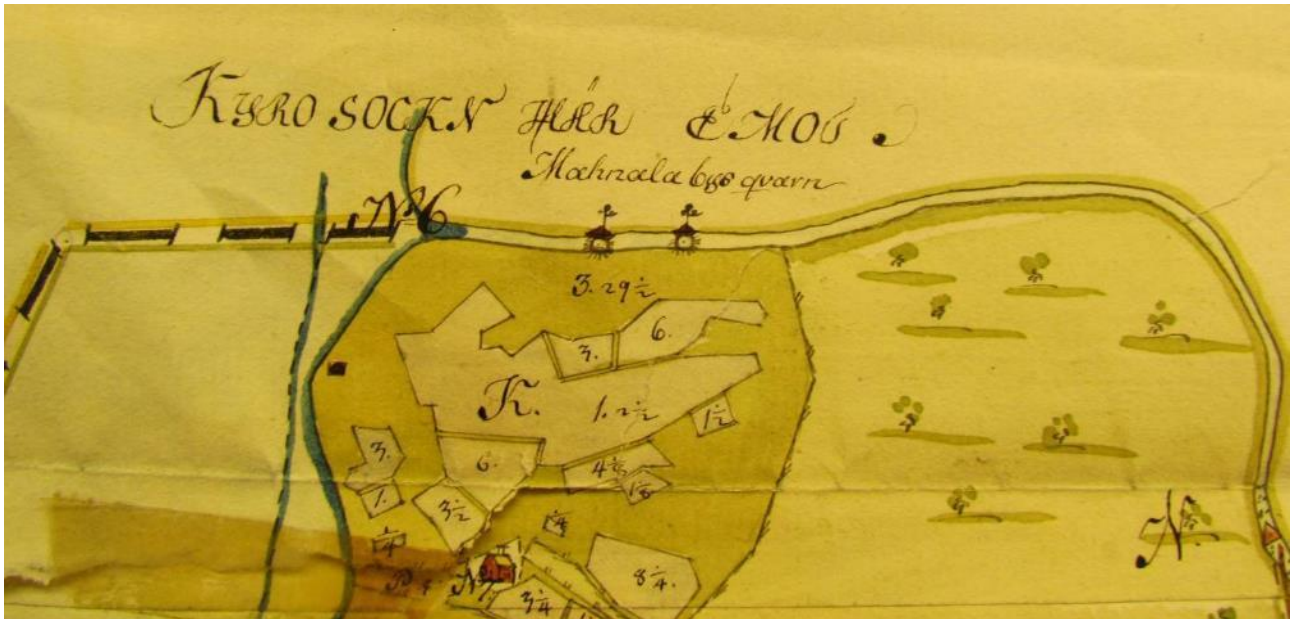 KYRO SOCKN HÄR EMOT.
Mahnala bys qvarn
No 6
3. 29 1/2
6.
3.
K.
1. 2 1/2
1 1/2
3.
6.
4 1/2
1.
3 1/2
1/4
N.
8 1/4.
3 1/4